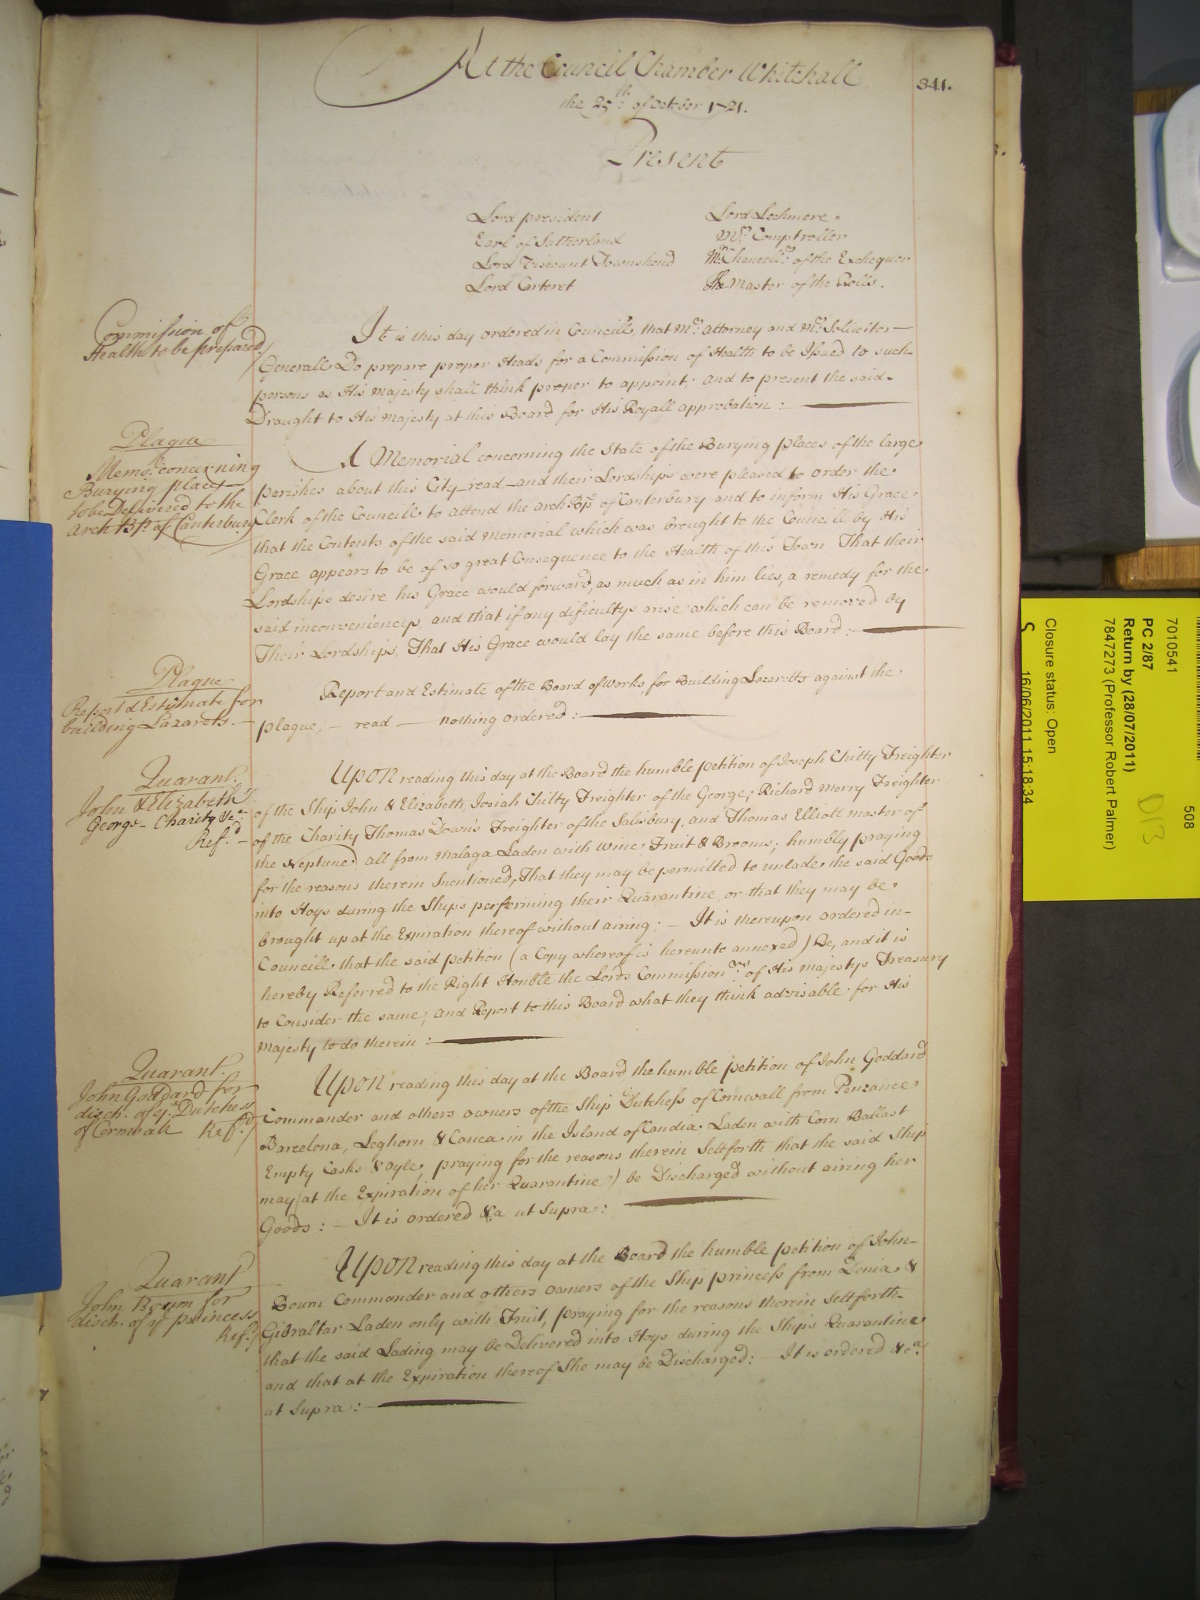 At the Council Chamber Whitehall
341.
the 25th: of October 1721.
Present
Lord president
Earl of Sutherland
Lord Viscount Townshend
Lord Carteret
Lord Lechmere.
Mr. Comptroller
Mr. Chancellr. of the Exchequer
The Master of the Rolls.
Commission of
Health to be prepared
It is this day ordered in Councill, that Mr. Attorney and Mr. Sollicitor
Generall Do prepare proper Heads for a Commission of Health to be Issued to such
persons as His Majesty shall think proper to appoint; and to present the said
Draught to His Majesty at this Board for His Royall approbation:
Plague
Meml. concerning
Burying places
to be Delivered to the
Arch Bp. of Canterbury
A Memorial concerning the State of the Burying places of the large
parishes about this City read and their Lordships were pleased to order the
Clerk of the Councill to attend the arch Bp. of Canterbury and to inform His Grace
that the Contents of the said Memorial which was brought to the Councill by His
Grace appears to be of so great Consequence to the Health of this Town That their
Lordships desire his Grace would forward, as much as in him lies, a remedy for the
said inconveniencys, and that if any dificultys arise which can be removed by
Their Lordships, That His Grace would lay the same before this Board:
Plague
Report & Estimate for
building Lazarets.
Report and Estimate of the Board of Works for Building Lazaretts against the
plague, read nothing ordered:
Quarant.
John & Elizabeth
George Charity &c
Ref'd
Upon reading this day at the Board the humble petition of Joseph Chitty Freighter
of the Ship John & Elizabeth, Josiah Chitty Freighter of the George, Richard Merry Freighter
of the Charity Thomas Downs Freighter of the Salsbury, and Thomas Elliott master of
the Neptune, all from Malaga Laden with Wine Fruit & Brooms; humbly praying
for the reasons therein Mentioned, That they may be permitted to unlade the said Goods
into Hoys during the Ships performing their Quarantine, or that they may be
brought up at the Expiration thereof without airing; It is thereupon ordered in
Councill that the said petition (a Copy whereof is hereunto annexed) Be, and it is
hereby Referred to the Right Honble the Lords Commissionrs of His Majestys Treasury
to Consider the same, and Report to this Board what they think advisable for His
Majesty to do therein:
Quarant.
John Goddard for
disch. of ye. Dutchess
of Cornwall Ref'd
Upon reading this day at the Board the humble petition of John Goddard
Commander and others owners of the Ship Dutchess of Cornwall from Penzance
Barcelona, Leghorn & Canea in the Island of Candia Laden with Corn Ballast
Empty Casks & Oyle, praying for the reasons therein Settforth that the said Ship
may (at the Expiration of her Quarantine) be Discharged without airing her
Goods: It is ordered &ca ut Supra:
Quarant
John for
disch. of ye princess
Ref'd
Upon reading this day at the Board the humble petition of John
Bown Commander and others owners of the Ship princess from Denia &
Gibraltar Laden only with Fruit, praying for the reasons therein Settforth
that the said Lading may be Delivered into Hoys during the Ships Quarantine
and that at the Expiration thereof She may be Discharged: It is ordered &ca.
ut Supra:
7010541
508
PC 2/87
Return by (28/07/2011)
7847273 (Professor Robert Palmer)
D13
Closure status: Open
S 16/06/2011 15:18:34